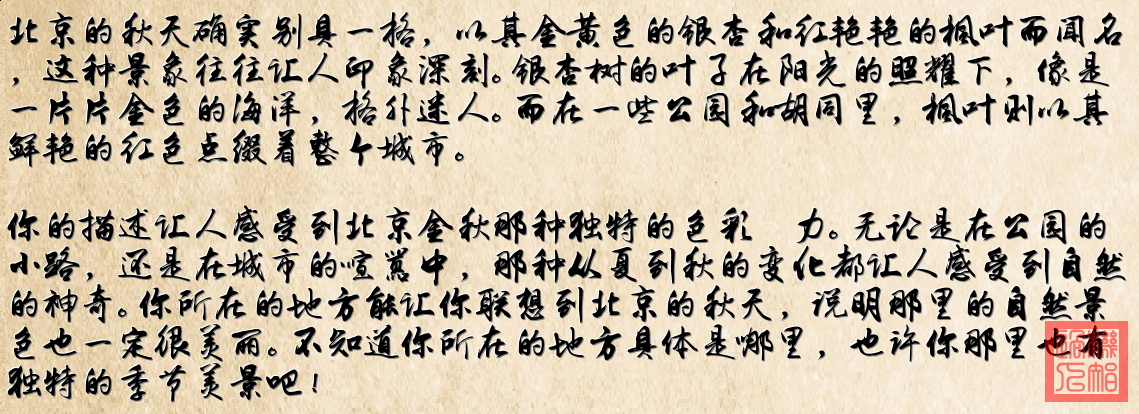 北京的秋天确实别具一格，以其金黄色的银杏和红艳艳的枫叶而闻名
，这种景象往往让人印象深刻。银杏树的叶子在阳光的照耀下，像是
一片片金色的海洋，格外迷人。而在一些公园和胡同里，枫叶则以其
鲜艳的红色点缀着整个城市。
你的描述让人感受到北京金秋那种独特的色彩 力。无论是在公园的
小路，还是在城市的喧嚣中，那种从夏到秋的变化都让人感受到自然
的神奇。你所在的地方能让你联想到北京的秋天，说明那里的自然景
色也一定很美丽。不知道你所在的地方具体是哪里，也许你那里也有
独特的季节美景吧！